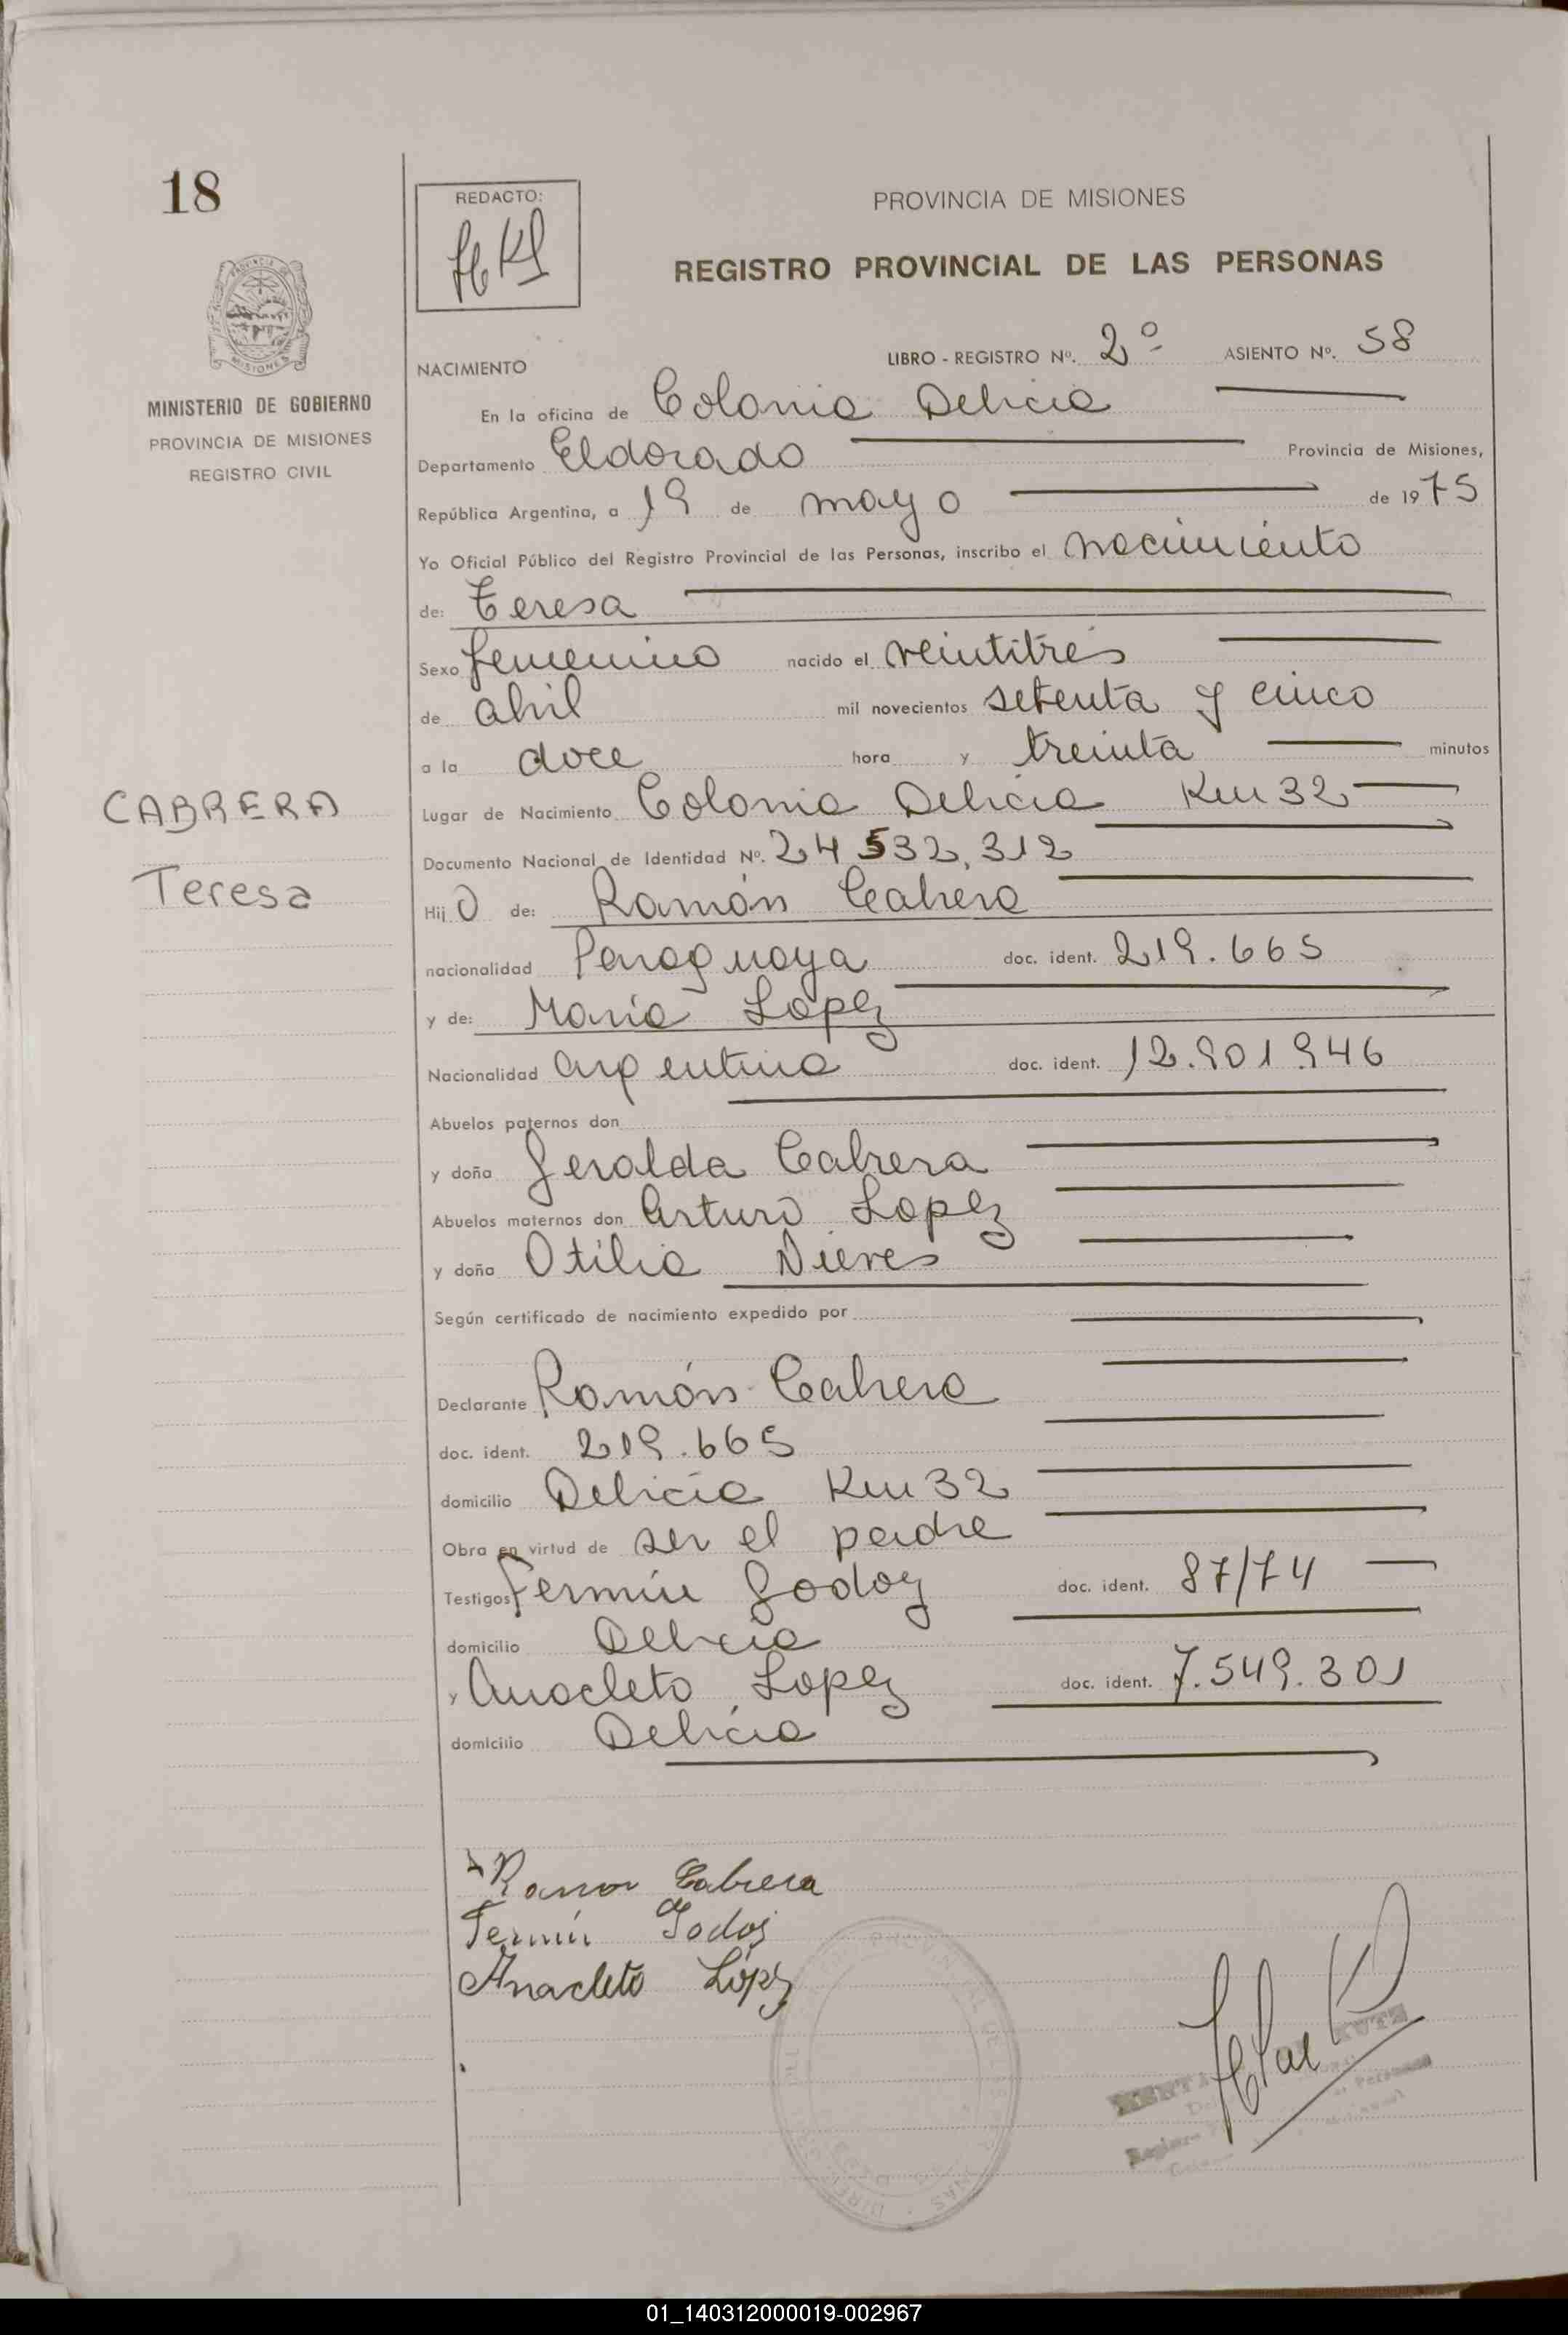 18
REDACTO:
HKS
PROVINCIA DE MISIONES
REGISTRO PROVINCIAL DE LAS PERSONAS
MINISTERIO DE GOBIERNO
PROVINCIA DE MISIONES
REGISTRO CIVIL
NACIMIENTO
LIBRO - REGISTRO Nº. 2º ASIENTO Nº. 58
En la oficina de Colonia Delicia
Departamento Eldorado Provincia de Misiones,
República Argentina, a 19 de mayo de 1975
Yo Oficial Público del Registro Provincial de las Personas, inscribo el nacimiento
de: Teresa
Sexo femenino nacido el veintitrés
de abril mil novecientos setenta y cinco
a la doce hora y treinta minutos
CABRERA
Teresa
Lugar de Nacimiento Colonia Delicia Km 32
Documento Nacional de Identidad Nº. 24 532.312
Hij0 de: Ramón Cabrera
nacionalidad Paraguaya doc. ident. 219.665
y de: María Lopez
Nacionalidad argentina doc. ident. 12.901.946
Abuelos paternos don
y doña Geralda Cabrera
Abuelos maternos don Arturo Lopez
y doña Otilia Nieves
Según certificado de nacimiento expedido por
Declarante Ramón Cabrera
doc. ident. 219.665
domicilio Delicia Km 32
Obra en virtud de ser el padre
Testigos Fermín Godoy doc. ident. 87/74
domicilio Delicia
y Anacleto Lopez doc. ident. 7.549.301
domicilio Delicia
Ramon Cabrera
Fermín Godoy
Anacleto López
01_140312000019-002967